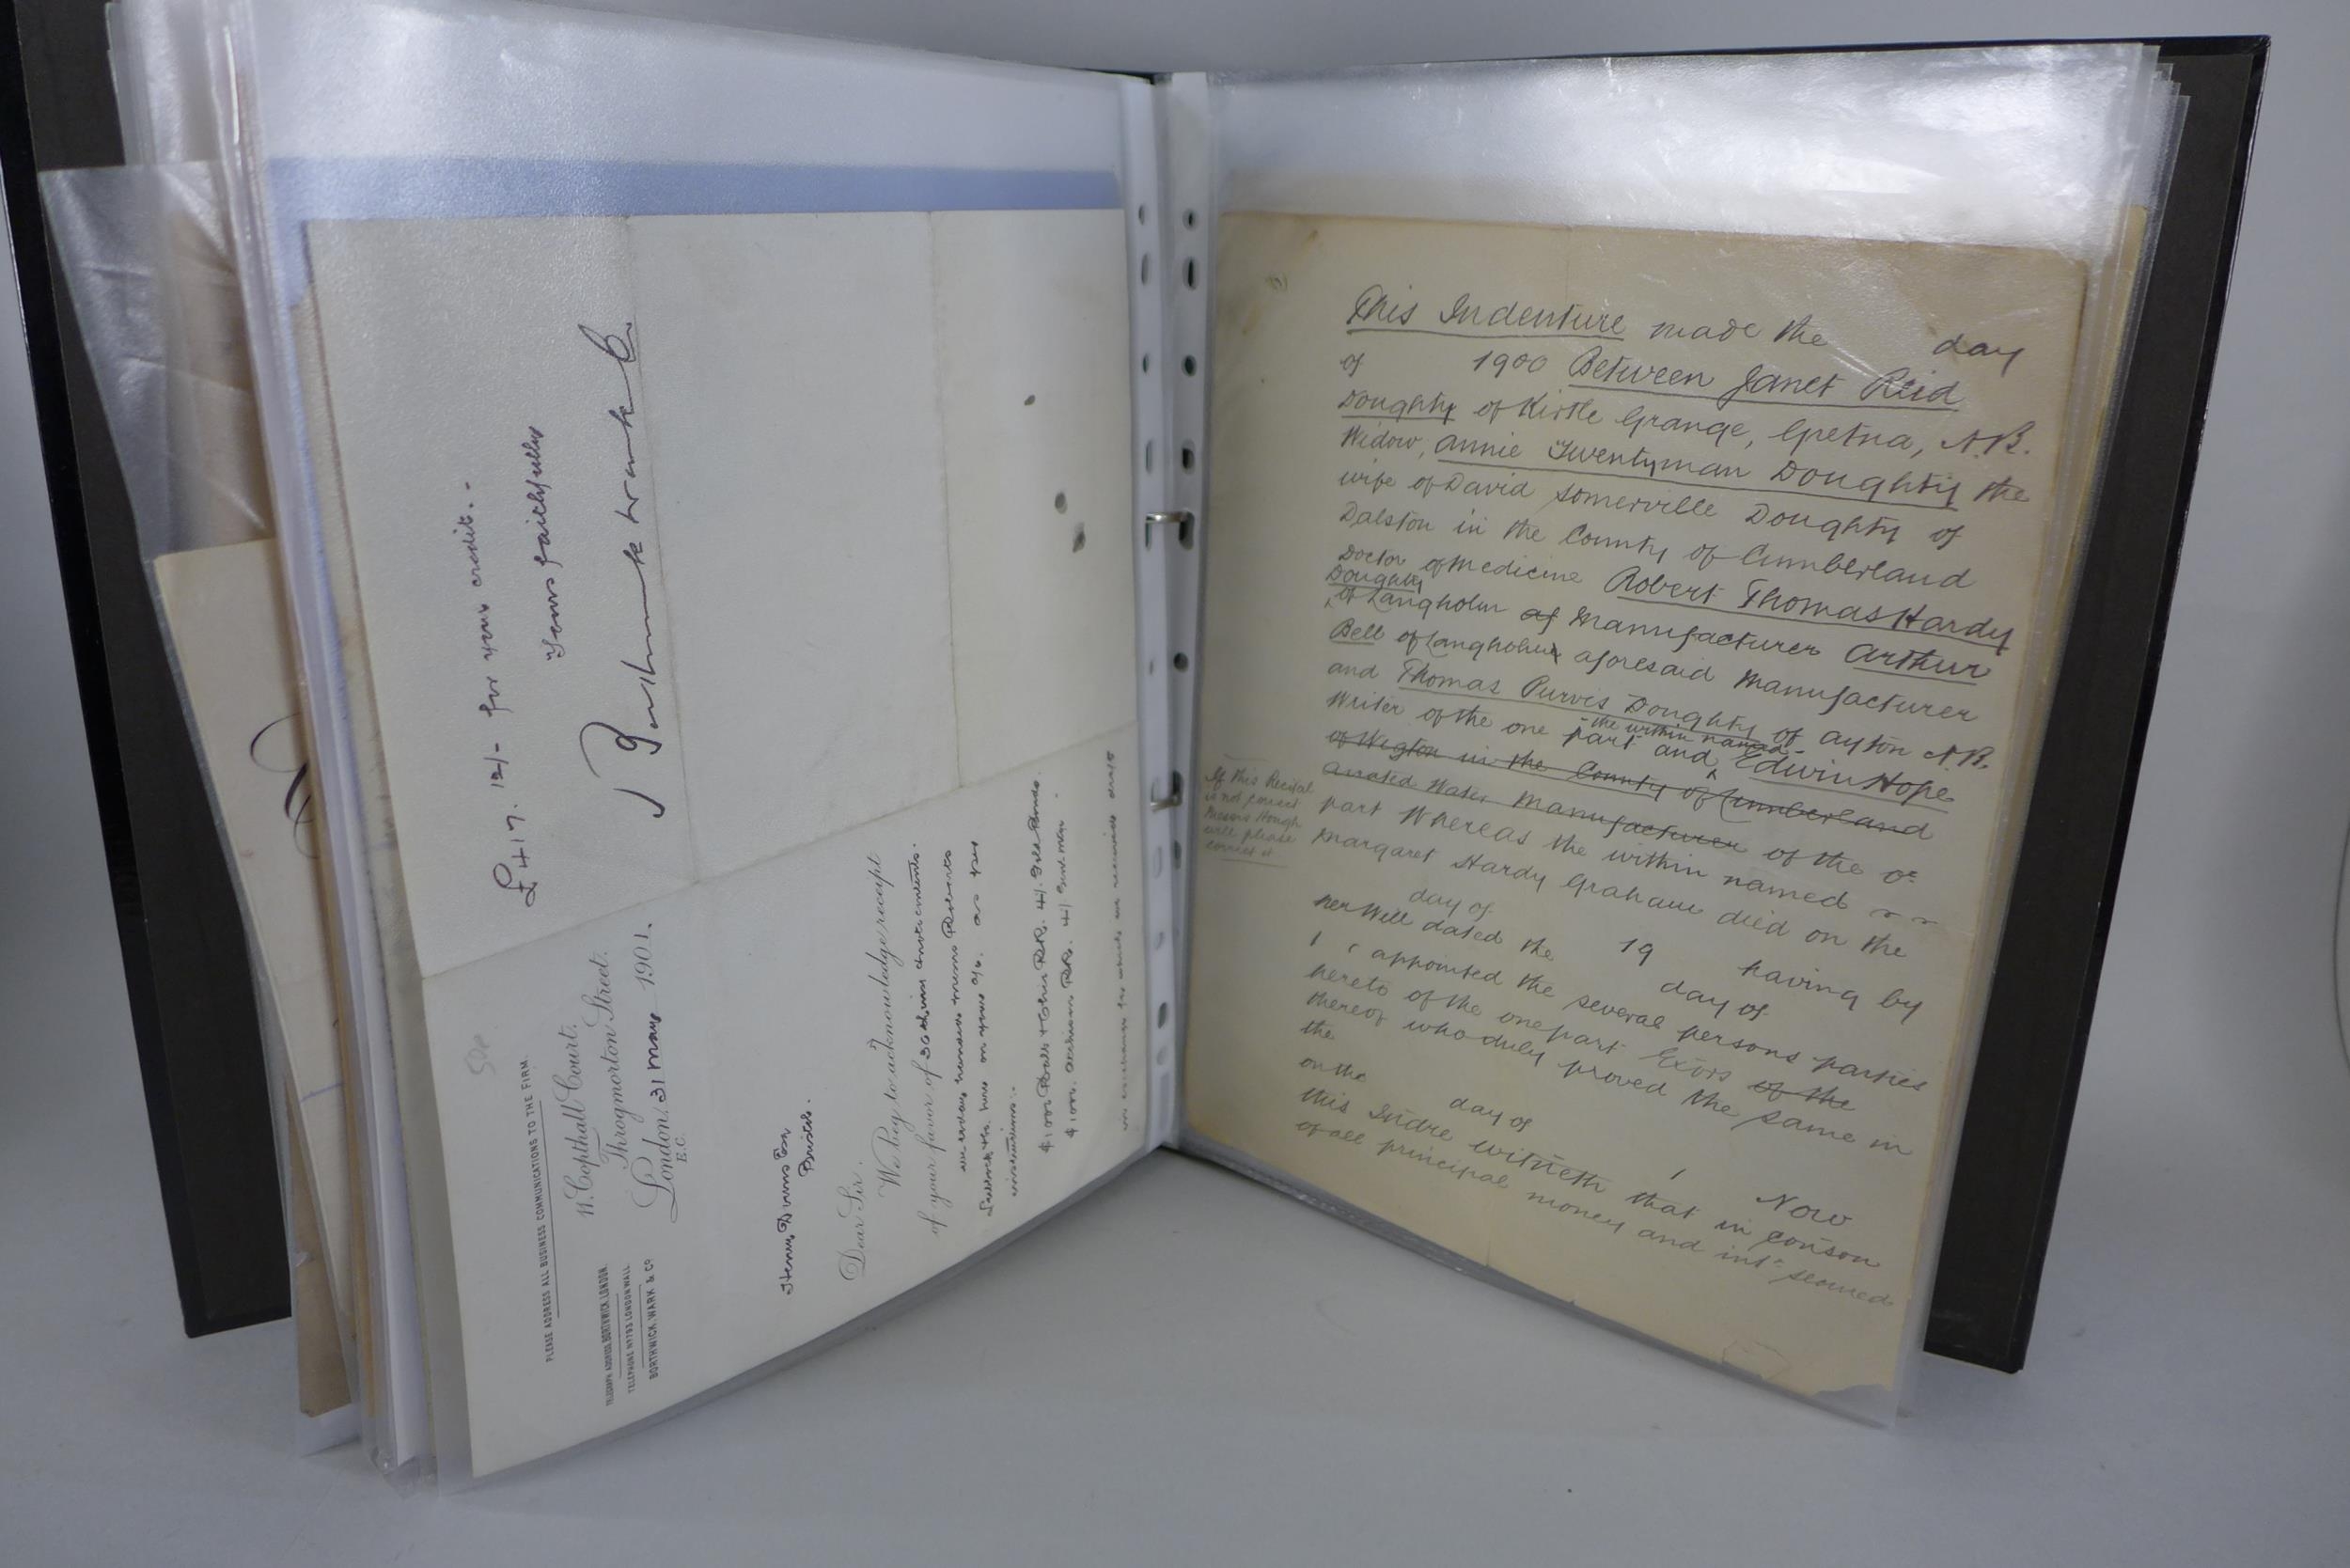 PLEASE ADDRESS ALL BUSINESS COMMUNICATIONS TO THE FIRM.
TELEGRAPH ADDRESS, BORTHWICK, LONDON.
TELEPHONE Nº 793, LONDON WALL.
BORTHWICK, WARK & Cº
11. Copthall Court,
Throgmorton Street,
London, 31 May 1901.
E.C.
Bristol.
Dear Sir,
We beg to acknowledge receipt
of your favor of 30th,
instructions:-
£417. 12/- for your credit.-
Yours faithfully
Borthwick Wark & Co.
This Indenture made the day
of 1900 Between Janet Reid
Doughty of Kirtle Grange, Gretna, N.B.
Widow, Annie Twentyman Doughty the
wife of David Somerville Doughty of
Dalston in the County of Cumberland
Doctor of Medicine Robert Thomas Hardy
Doughty
of Langholm of Manufacturer Arthur
Bell of Langholm aforesaid Manufacturer
and Thomas Purvis Doughty of Ayton N.B.
Writer of the one part and the within named Edwin Hope
of Wigton in the County of Cumberland
Aerated Water Manufacturer of the or
part Whereas the within named
Margaret Hardy Graham died on the
day of 19 having by
her Will dated the day of
appointed the several persons parties
hereto of the one part Exors of the
thereof who duly proved the same in
the
on the day of Now
this Indre witneth that in conson
of all principal money and int: secured
If this Recital
is not correct
Messrs Hough
will please
correct it